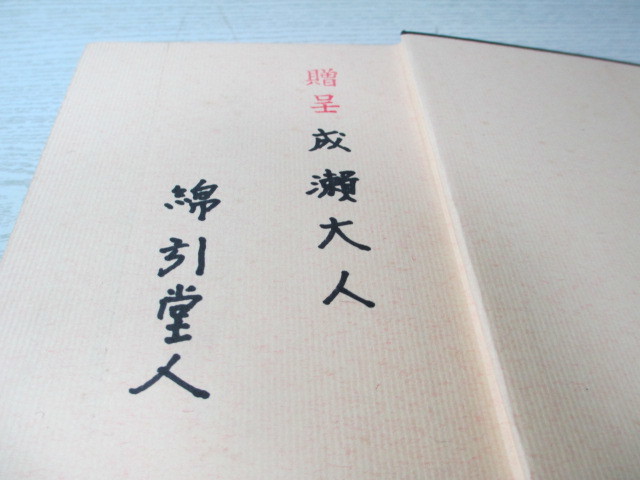 贈呈 成瀬大人
綿引堂人